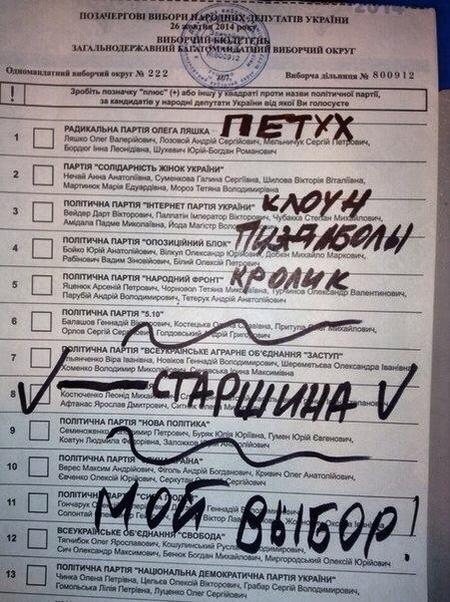 2014
ПОЗАЧЕРГОВІ ВИБОРИ НАРОДНИХ ДЕПУТАТІВ УКРАЇНИ
26 жовтня 2014 року
ВИБОРЧИЙ БЮЛЕТЕНЬ
ЗАГАЛЬНОДЕРЖАВНИЙ БАГАТОМАНДАТНИЙ ВИБОРЧИЙ ОКРУГ
800912
Одномандатний виборчий округ № 222
Виборча дільниця № 800912
! Зробіть позначку "плюс" (+) або іншу в квадраті проти назви політичної партії,
за кандидатів у народні депутати України від якої Ви голосуєте
1 РАДИКАЛЬНА ПАРТІЯ ОЛЕГА ЛЯШКА ПЕТУХ
Ляшко Олег Валерійович, Лозовой Андрій Сергійович, Мельничук Сергій Петрович,
Бордюг Інна Леонідівна, Шухевич Юрій-Богдан Романович
2 ПАРТІЯ "СОЛІДАРНІСТЬ ЖІНОК УКРАЇНИ"
Нечай Анна Анатоліївна, Суменкова Галина Сергіївна, Шилова Вікторія Віталіївна,
Мартинюк Марія Едуардівна, Мороз Тетяна Володимирівна
3 ПОЛІТИЧНА ПАРТІЯ "ІНТЕРНЕТ ПАРТІЯ УКРАЇНИ" КЛОУН
Вейдер Дарт Вікторович, Паллатін Імператор Вікторович, Чубакка Степан Михайлович,
Амідала Падме Миколаївна, Йода Магістр
4 ПОЛІТИЧНА ПАРТІЯ "ОПОЗИЦІЙНИЙ БЛОК" ПИЗДАБОЛЫ
Бойко Юрій Анатолійович, Вілкул Олександр Юрійович, Добкін Михайло Маркович,
Рабінович Вадим Зіновійович, Білий Олексій Петрович
5 ПОЛІТИЧНА ПАРТІЯ "НАРОДНИЙ ФРОНТ" КРОЛИК
Яценюк Арсеній Петрович, Чорновол Тетяна Миколаївна, Турчинов Олександр Валентинович,
Парубій Андрій Володимирович, Тетерук Андрій Анатолійович
6 ПОЛІТИЧНА ПАРТІЯ "5.10"
Балашов Геннадій Вікторович, Костецька Олена Ігорівна, Притула Михайлович,
Орлов Сергій Голдовський Андрій Григорович
7 ПОЛІТИЧНА ПАРТІЯ "ВСЕУКРАЇНСЬКЕ АГРАРНЕ ОБ'ЄДНАННЯ "ЗАСТУП"
Ульянченко Віра Іванівна, Новіков Геннадій Володимирович, Шереметьєва Олександра Іванівна
Хоменко Володимир Миколайович, Ірина Максимівна
8 СТАРШИНА
Костюченко Леонід
Афтанас Ярослав Дмитрович,
9 ПОЛІТИЧНА ПАРТІЯ "НОВА ПОЛІТИКА"
Семиноженко Володимир Петрович, Буряк Юлія Юріївна, Гумен Юрій Євгенович,
Ковтун Людмила
10 УКРАЇНА"
Верес Максим Андрійович, Фіголь Андрій Богданович, Кривич Олег Анатолійович,
Євченко Олексій Юрійович,
11 ПОЛІТИЧНА ПАРТІЯ МОЙ ВЫБОР!
Гончарук
12 ВСЕУКРАЇНСЬКЕ ОБ'ЄДНАННЯ "СВОБОДА"
Тягнибок Олег Ярославович, Кошулинський Руслан Володимирович,
Сич Олександр Максимович, Бенюк Богдан Михайлович, Миргородський Олексій Юрійович
13 ПОЛІТИЧНА ПАРТІЯ "НАЦІОНАЛЬНА ДЕМОКРАТИЧНА ПАРТІЯ УКРАЇНИ"
Чинка Олена Петрівна, Цельсв Олексій Вікторович, Грабар Сергій Валерійович
Гомольська Лілія Петрівна, Луценко Олег Сергійович